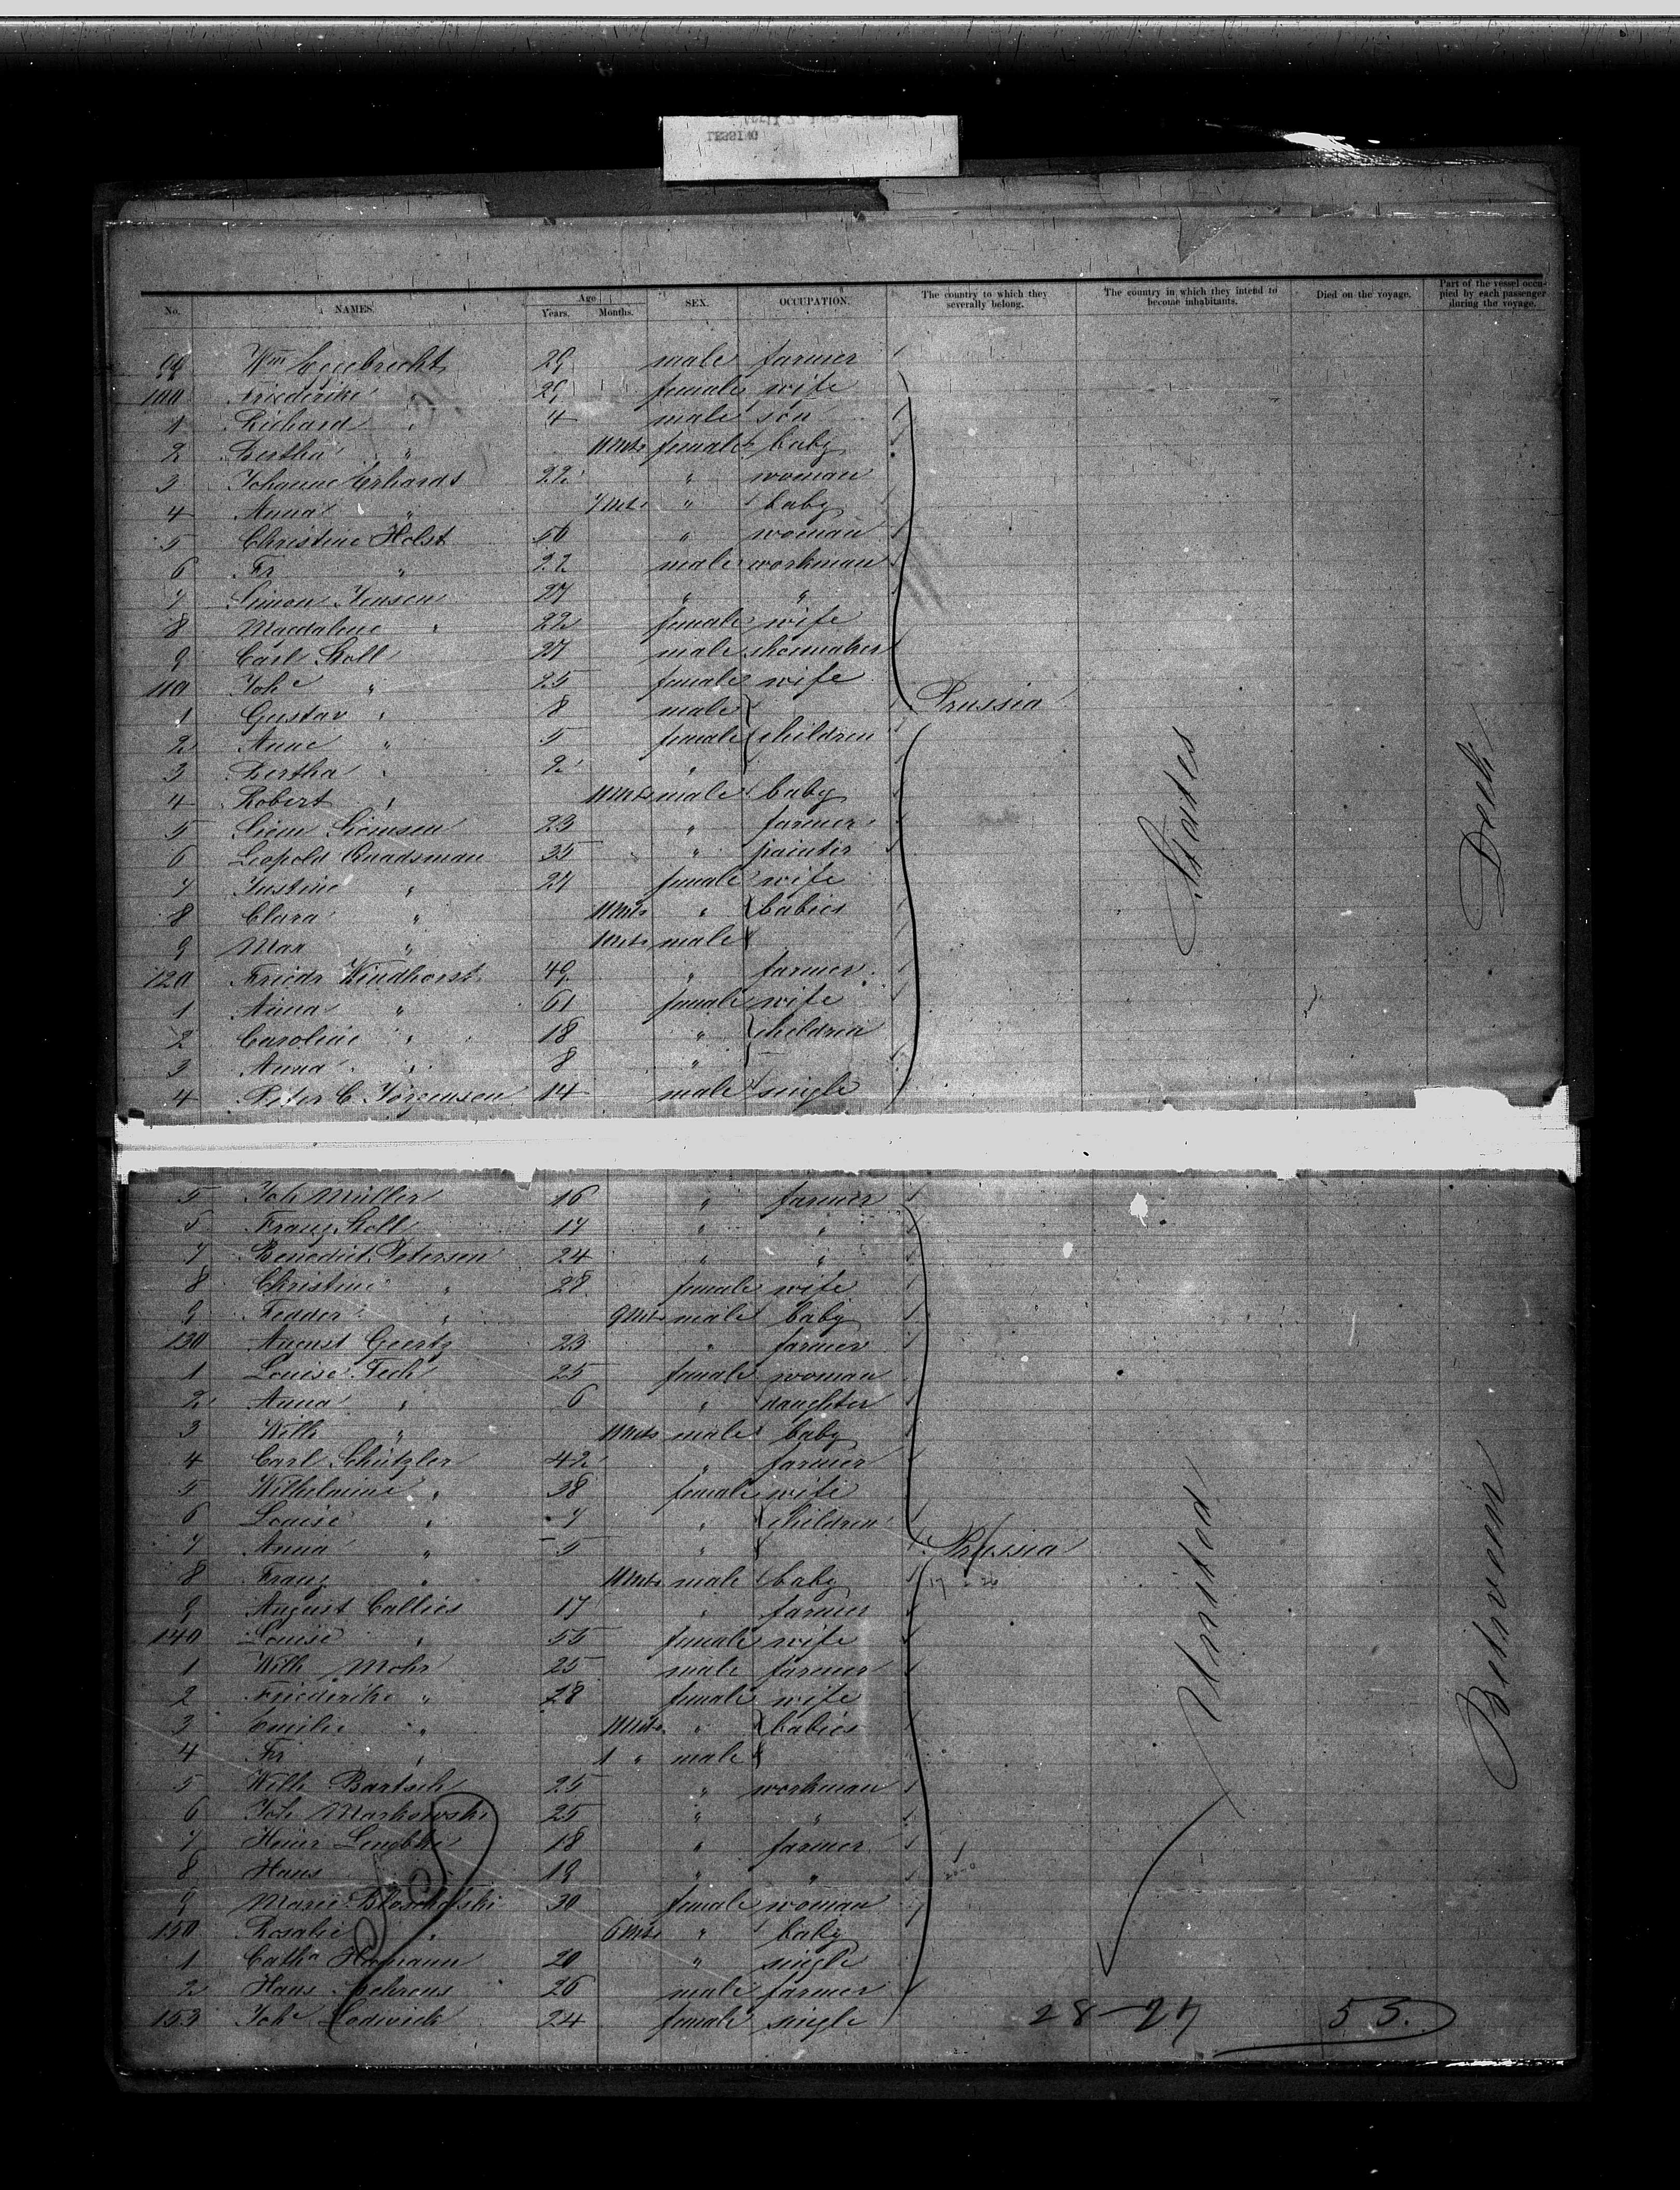 LESSING
No. NAMES. Age Years. Months. SEX. OCCUPATION. The country to which they severally belong. The country in which they intend to become inhabitants. Died on the voyage. Part of the vessel occupied by each passenger during the voyage.
99 Wm Eggebrecht 29 male farmer
100 Friederike " 29 female wife
1 Richard " 4 male son
2 Bertha " 11 Mts female baby
3 Johanne Erhardt 22 " woman
4 Anna " 7 Mts " baby
5 Christine Holst 56 " woman
6 Fr " 22 male workman
7 Simon Jensen 27 " "
8 Magdalene " 22 female wife
9 Carl Stoll 27 male shoemaker
110 Johe " 25 female wife
1 Gustav " 8 male Prussia
2 Anne " 5 female children
3 Bertha " 2 "
4 Robert " 11 Mts male baby
5 Siem Siemsen 23 " farmer
6 Leopold Quadsman 35 " painter
7 Justine " 27 female wife
8 Clara " 11 Mts " babies
9 Max " 1 Mts male
120 Friedr Windhorst 49 " farmer
1 Anna " 61 female wife
2 Caroline " 18 " children
3 Anna " 8 "
4 Peter C. Jörgensen 14 male single
States
Deck
5 Joh Müller 16 " farmer
6 Franz Stoll 17 " "
7 Benedict Petersen 24 " "
8 Christine " 28 female wife
9 Fedder " 9 Mts male baby
130 August Geertz 23 " farmer
1 Louise Tech 25 female woman
2 Anna " 6 " daughter
3 Wilh " 11 Mts male baby
4 Carl Schützler 42 " farmer
5 Wilhelmine " 38 female wife
6 Louise " 7 " children
7 Anna " 5 " Prussia
8 Franz " 11 Mts male baby
9 August Callies 17 " farmer
140 Louise " 55 female wife
1 Wilh Mohr 25 male farmer
2 Friederike " 28 female wife
3 Emilie " 11 Mts " babies
4 Fr " 1 " male
5 Wilh Bartsch 25 " workman
6 Joh Markowski 25 " "
7 Heinr Lembke 18 " farmer
8 Hans " 19 " "
9 Marie 30 female woman
150 Rosalie " 6 Mts " baby
1 Catha Hamann 20 " single
2 Hans Behrens 26 male farmer
153 Johe Lodwick 24 female single
United
Between
28-27 53.